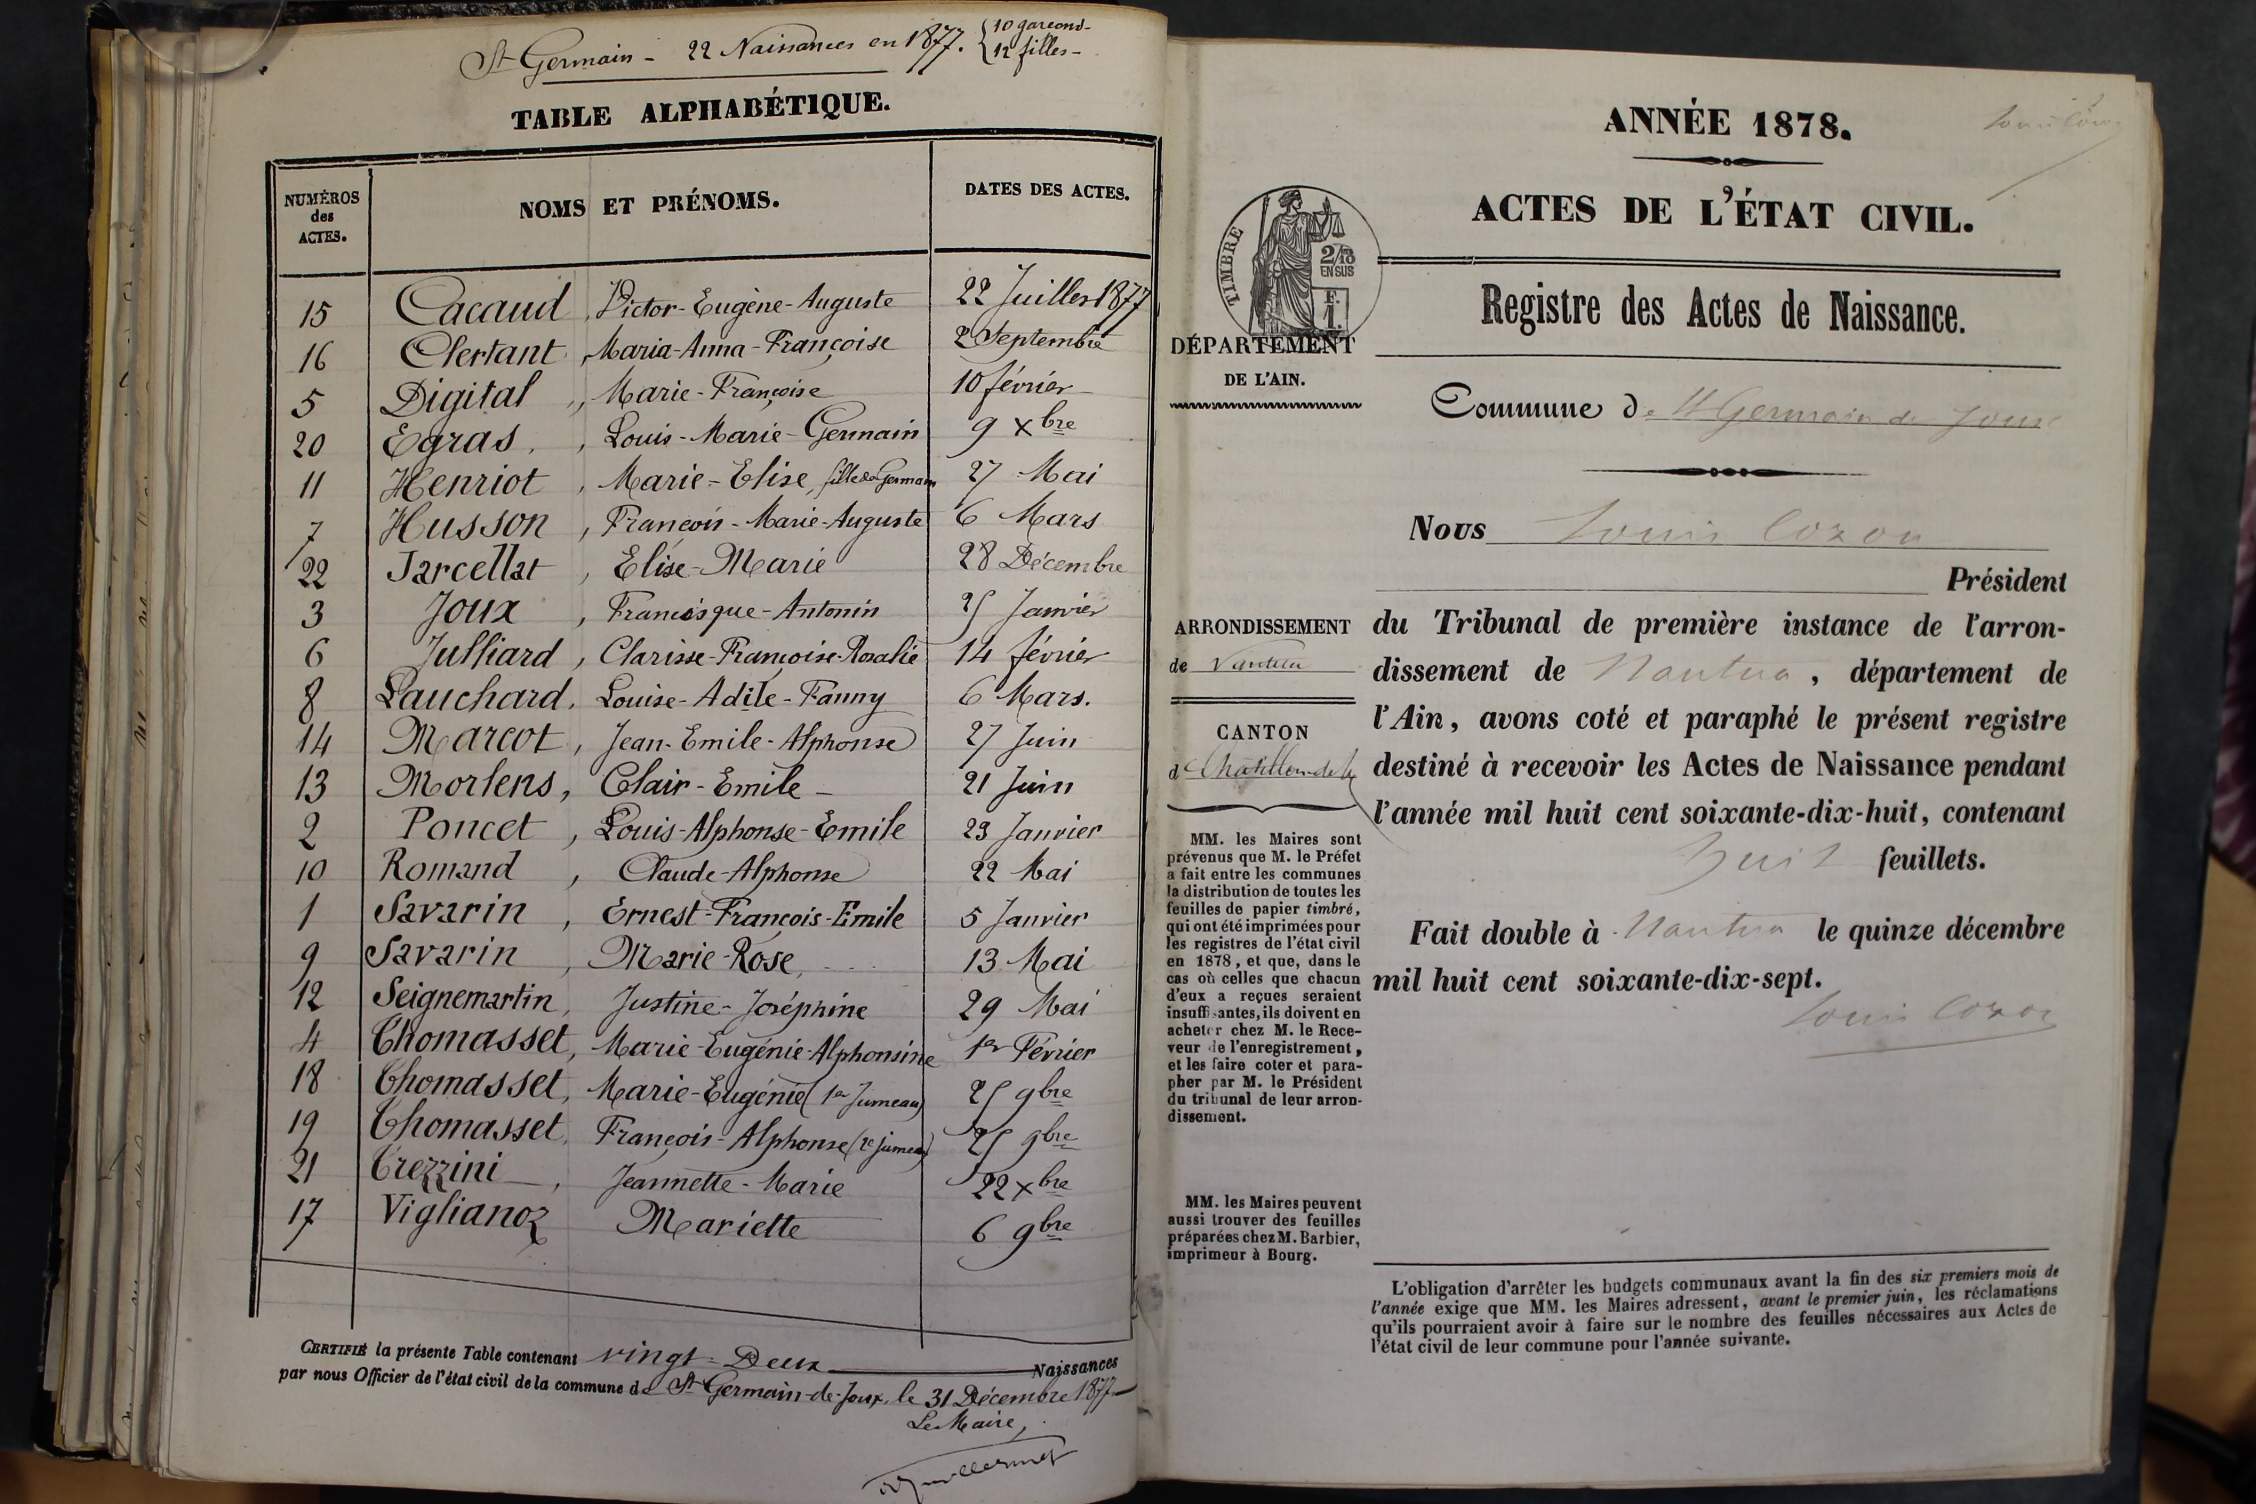 St Germain - 22 Naissances en 1877. { 10 garcons -
12 filles -
TABLE ALPHABÉTIQUE.
NUMÉROS des ACTES. NOMS ET PRÉNOMS. DATES DES ACTES.
15 Cacaud, Victor-Eugène-Auguste 22 Juillet 1877
16 Clertant, Maria-Anna-Françoise 2 Septembre
5 Digital, Marie-Françoise 10 février
20 Egras, Louis-Marie-Germain 9 Xbre
11 Henriot, Marie-Elise, fille de Germain 27 Mai
7 Husson, François-Marie-Auguste 6 Mars
22 Jarcellat, Elise-Marie 28 Décembre
3 Joux, Francisque-Antonin 25 Janvier
6 Julliard, Clarisse-Françoise-Rosalie 14 février
8 Lauchard, Louise-Adile-Fanny 6 Mars.
14 Marcot, Jean-Emile-Alphonse 27 Juin
13 Morlens, Clair-Emile - 21 Juin
2 Poncet, Louis-Alphonse-Emile 23 Janvier
10 Romand, Claude-Alphonse 22 Mai
1 Savarin, Ernest-François-Emile 5 Janvier
9 Savarin, Marie-Rose, 13 Mai
12 Seignemartin, Justine-Joséphine 29 Mai
4 Thomasset, Marie-Eugénie-Alphonsine 1er Février
18 Thomasset, Marie-Eugénie (1er Jumeau) 25 9bre
19 Thomasset, François-Alphonse (2e jumeau) 25 9bre
21 Trezzini, Jeannette-Marie 22 Xbre
17 Viglianoz Mariette 6 9bre
CERTIFIÉ la présente Table contenant vingt-Deux Naissances
par nous Officier de l'état civil de la commune de St Germain-de-Joux, le 31 Décembre 1877
Le Maire,
ANNÉE 1878.
ACTES DE L'ÉTAT CIVIL.
TIMBRE
2/10
EN SUS
F.
1.
DÉPARTEMENT
DE L'AIN.
Registre des Actes de Naissance.
Commune de St Germain de Joux
Nous Louis Cozon
Président
du Tribunal de première instance de l'arron-
dissement de Nantua, département de
l'Ain, avons coté et paraphé le présent registre
destiné à recevoir les Actes de Naissance pendant
l'année mil huit cent soixante-dix-huit, contenant
huit feuillets.
Fait double à Nantua le quinze décembre
mil huit cent soixante-dix-sept.
Louis Cozon
ARRONDISSEMENT
de Nantua
CANTON
de Chatillon de
MM. les Maires sont
prévenus que M. le Préfet
a fait entre les communes
la distribution de toutes les
feuilles de papier timbré,
qui ont été imprimées pour
les registres de l'état civil
en 1878, et que, dans le
cas où celles que chacun
d'eux a reçues seraient
insuffisantes, ils doivent en
acheter chez M. le Rece-
veur de l'enregistrement,
et les faire coter et para-
pher par M. le Président
du tribunal de leur arron-
dissement.
MM. les Maires peuvent
aussi trouver des feuilles
préparées chez M. Barbier,
imprimeur à Bourg.
L'obligation d'arrêter les budgets communaux avant la fin des six premiers mois de
l'année exige que MM. les Maires adressent, avant le premier juin, les réclamations
qu'ils pourraient avoir à faire sur le nombre des feuilles nécessaires aux Actes de
l'état civil de leur commune pour l'année suivante.